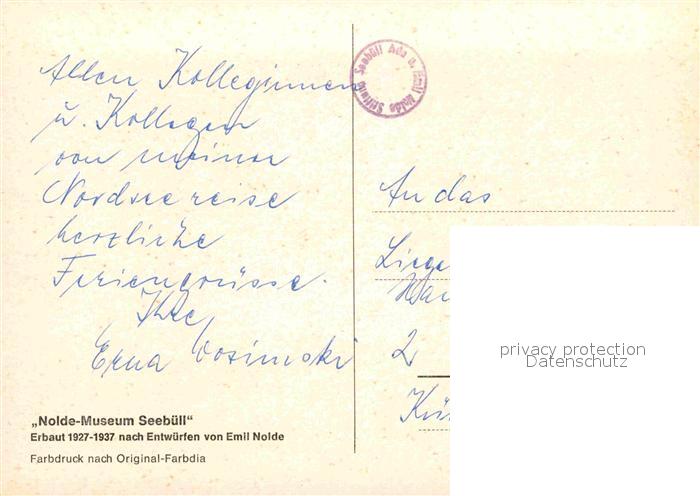 Allen Kolleginnen
u. Kollegen
von meiner
Nordseereise
herzliche
Feriengrüsse.
Ihre
Erna
„Nolde-Museum Seebüll"
Erbaut 1927-1937 nach Entwürfen von Emil Nolde
Farbdruck nach Original-Farbdia
Stiftung Seebüll Ada u. Emil Nolde
An das
2
privacy protection
Datenschutz